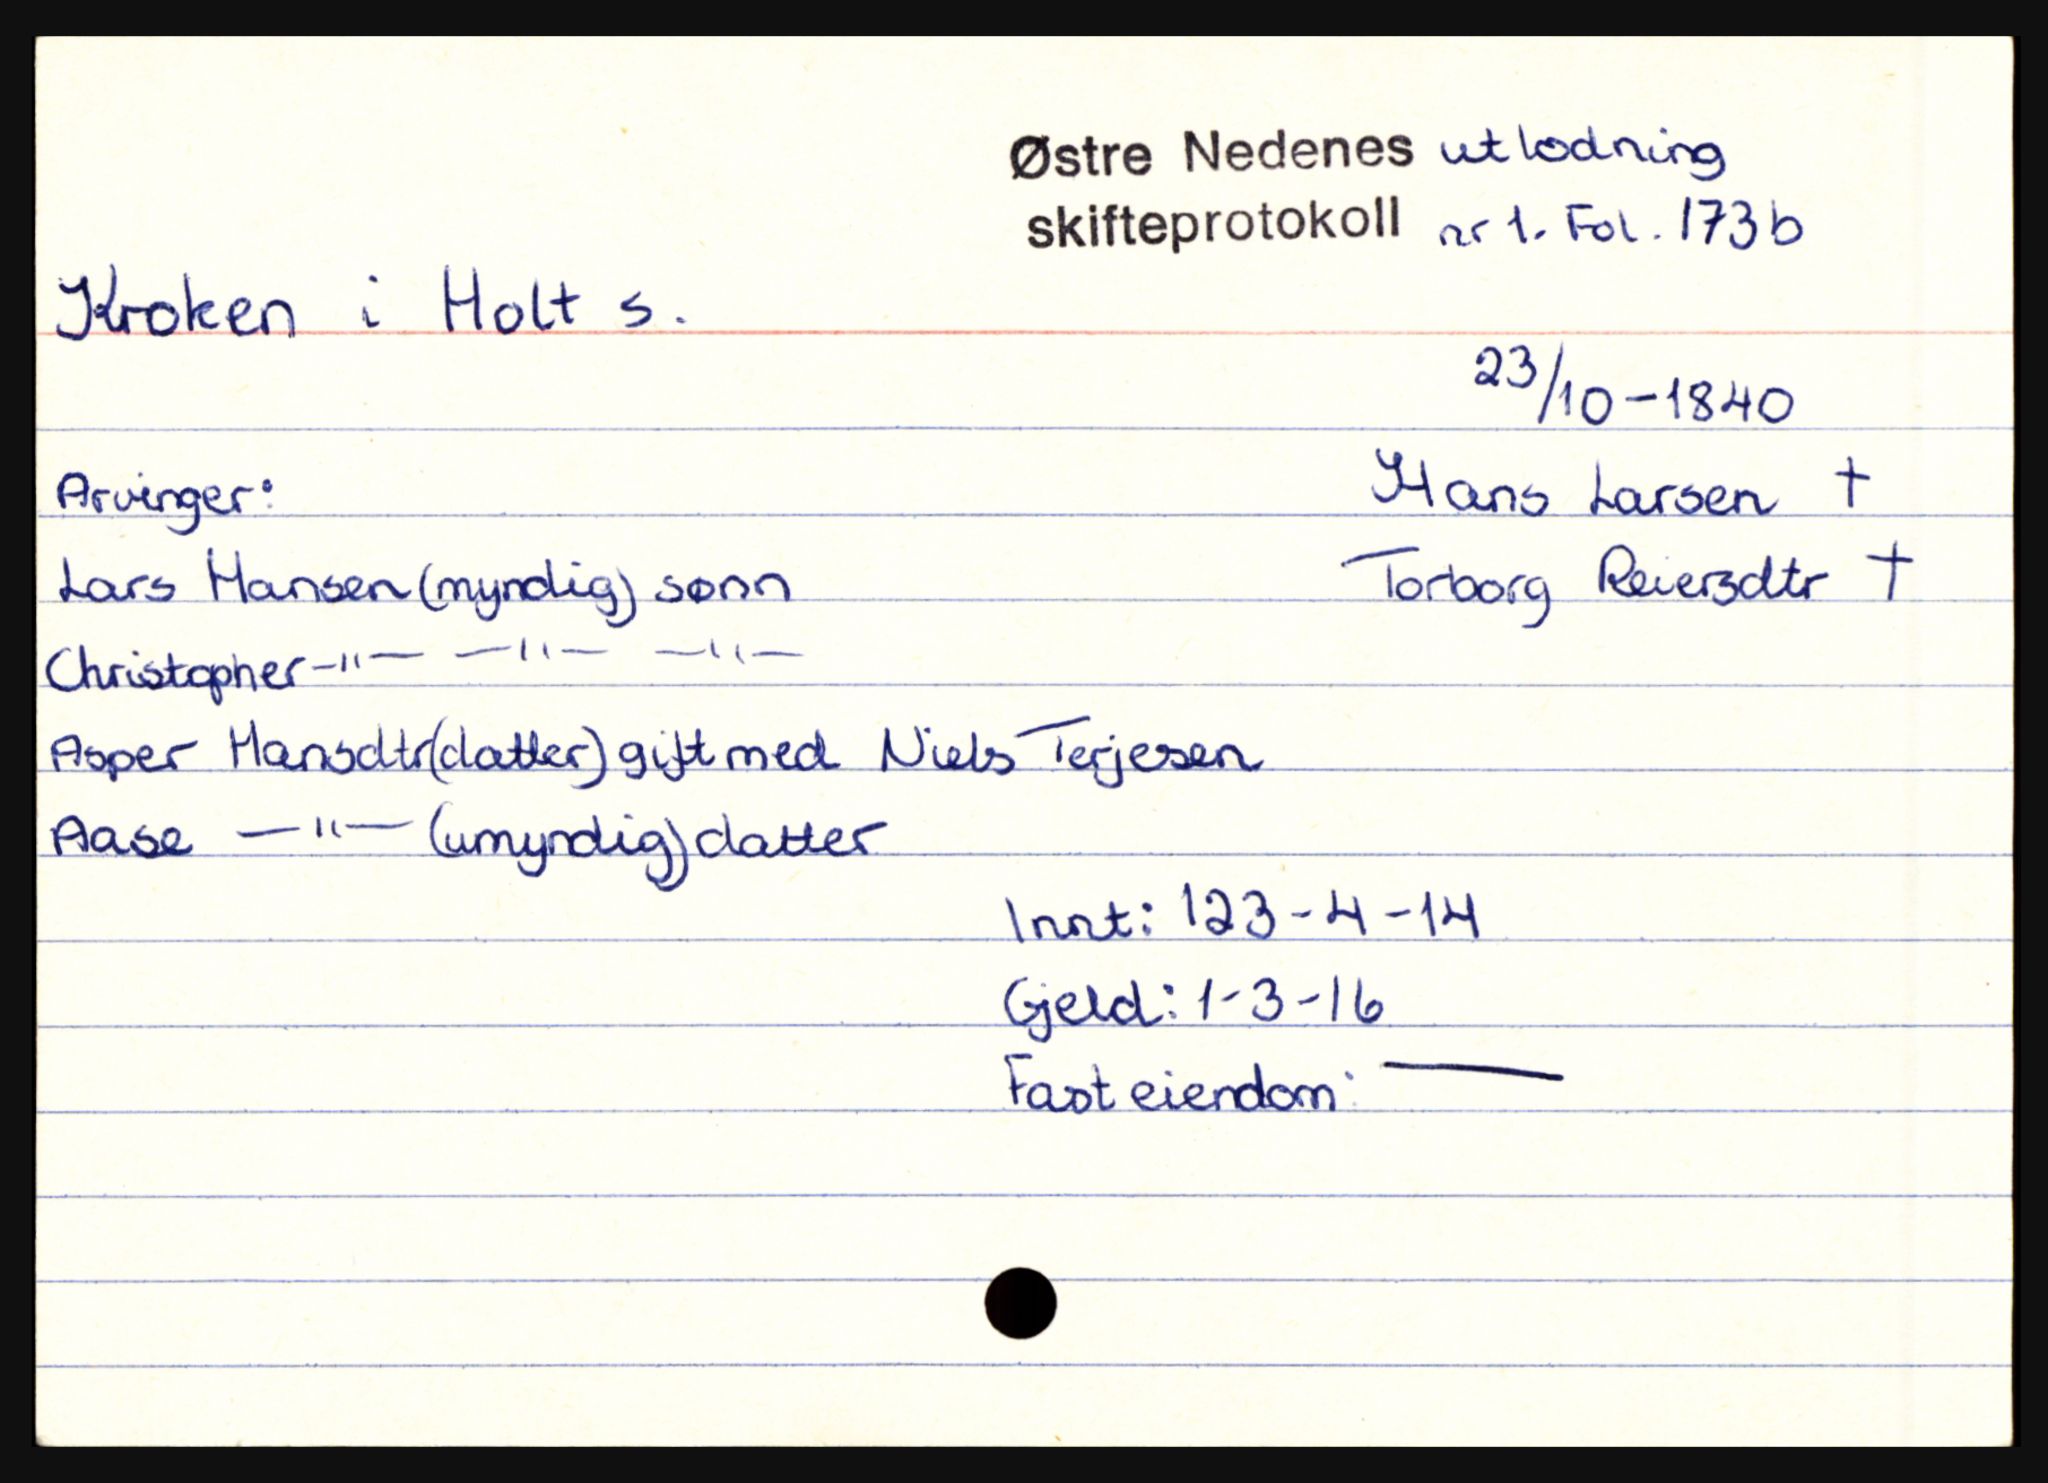 Østre Nedenes utlodning
skifteprotokoll nr 1. Fol. 173b
Kroken i Holt s.
23/10-1840
Arvinger: Hans Larsen †
Lars Hansen (myndig) sønn Torborg Reiersdtr †
Christopher -"- -"- -"-
Asper Hansdtr (datter) gift med Niels Terjesen
Aase -"- (umyndig) datter
Innt: 123-4-14
Gjeld: 1-3-16
Fast eiendom: —